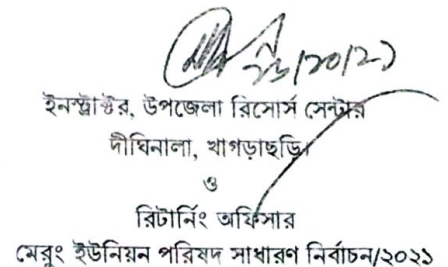 ইনস্ট্রাক্টর, উপজেলা রিসোর্স সেন্টার
দীঘিনালা, খাগড়াছড়ি।
ও
রিটার্নিং অফিসার
মেরুং ইউনিয়ন পরিষদ সাধারণ নির্বাচন/২০২১